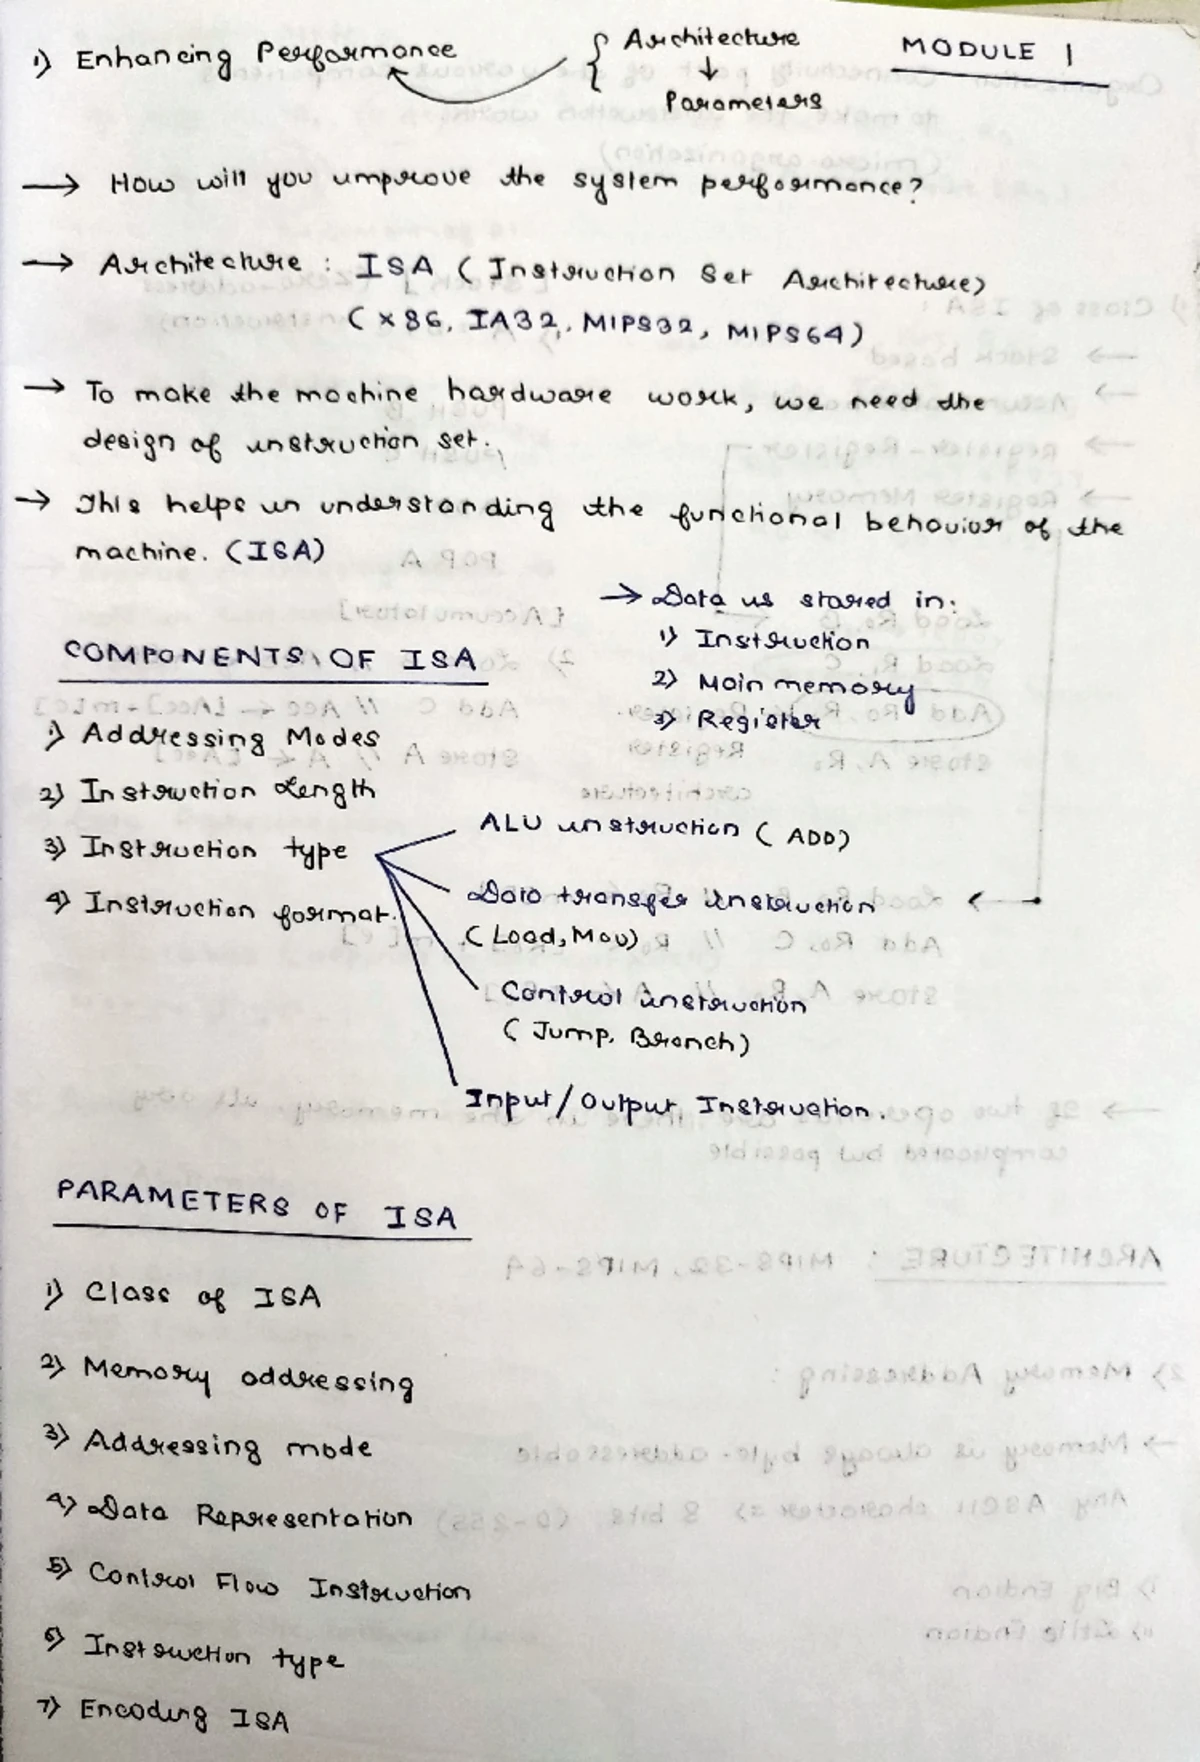 MODULE 1
1) Enhancing Performance { Architecture
↓
Parameters
→ How will you improve the system performance?
→ Architecture : ISA ( Instruction Set Architecture)
( X86, IA32, MIPS32, MIPS64)
→ To make the machine hardware work, we need the
design of instruction set.
→ This helps in understanding the functional behavior of the
machine. (ISA)
→ Data is stored in:
1) Instruction
2) Main memory
3) Register
COMPONENTS OF ISA
1) Addressing Modes
2) Instruction Length
3) Instruction type
4) Instruction format.
ALU instruction ( ADD)
Data transfer instruction
( Load, Mov)
Control instruction
( Jump, Branch)
Input/Output Instruction.
PARAMETERS OF ISA
1) Class of ISA
2) Memory addressing
3) Addressing mode
4) Data Representation
5) Control Flow Instruction
6) Instruction type
7) Encoding ISA